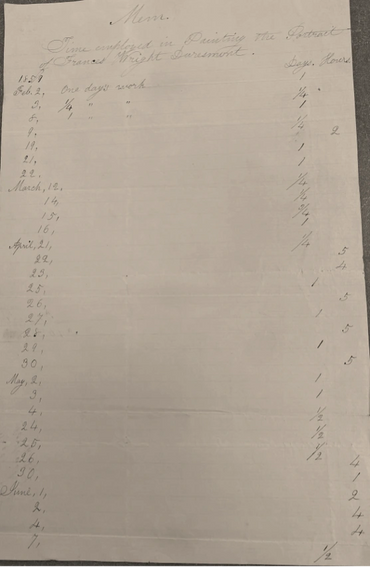 Mem.
Time employed in Painting the Portrait
of Frances Wright Darusmont.
Days. Hours
1859
Feb. 2, One days work 1
3, 3/4 " " 3/4
8, 1 " " 1
9, 3/4
19, 2
21, 1
22, 1
March, 12, 3/4
14, 3/4
15, 3/4
16, 1
April, 21, 3/4
22, 5
23, 4
25, 1
26, 5
27, 1
28, 5
29, 1
30, 5
May, 2, 1
3, 1
4, 1/2
24, 1/2
25, 1/2
26, 4
30, 1
June, 1, 2
2, 4
4, 4
7, 1/2